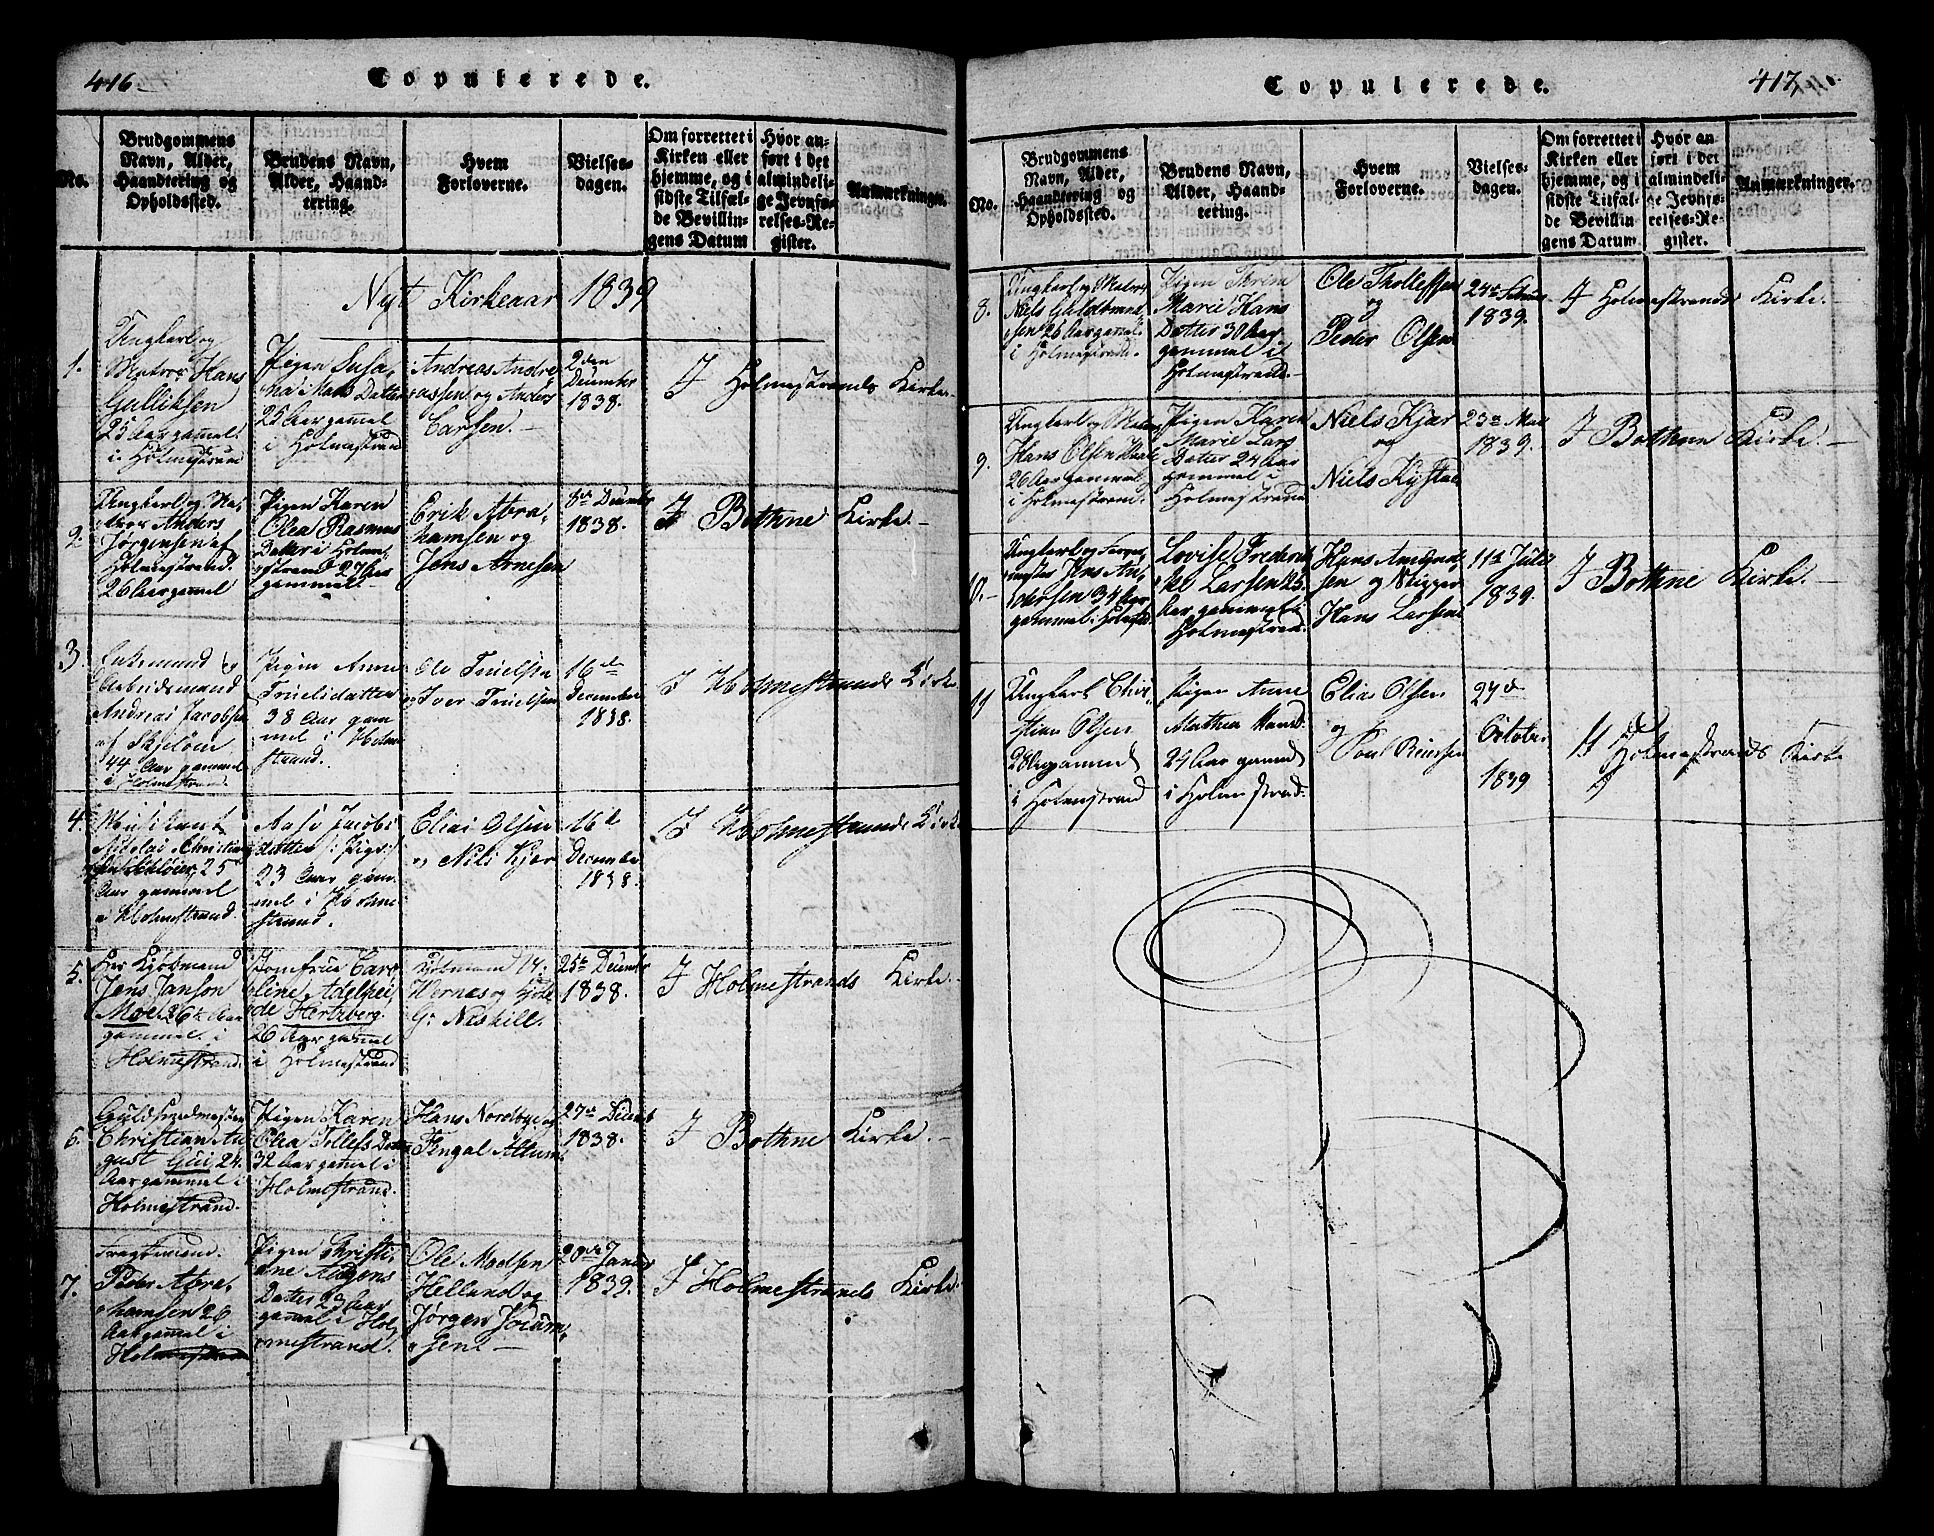 416
Copulerede.
No.
Brudgommens
Navn, Alder,
Haandtering og
Opholdssted.
Brudens Navn,
Alder, Haand-
tering.
Hvem
Forloverne.
Vielses-
dagen.
Om forrettet i
Kirken eller
hjemme, og i
sidste Tilfæl-
de Bevillin-
gens Datum
Hvor an-
ført i det
almindeli-
ge Jevnfø-
relses-Re-
gister.
Anmærkninger.
Nyt Kirkeaar 1839
1.
Ungkarl og
Matros Hans
Gulliksen
25 Aar gamel.
i Holmestrand
Pigen Susa,
Mads Datter
25 Aar gammel
i Holmestrand
Andreas Andre
assen og Anders
Carlsen.
2den
December
1838.
I Holmestrands Kirke.
2
Ungkarl og Ma,
Anders
Jørgensen af
Holmestrand.
26 Aar gamel
Pigen Karen
Olea Rasmus
Datter i Holme
strand 27 Aar
gammel.
Erik Abra,
hamsen og
Jens Arnesen
8de Decembr
1838.
I Bothne Kirke.
3.
Enkemand og
Arbeidsmand
Andreas Jacobsen
af
44 Aar gammel
i Holmestrand.
Pigen Anne
Truelsdatter
38 Aar gam
mel i Holme
strand.
Ole Truelsen
Iver Truelsen
16de
December
1838.
I Holmestrands Kirke
4.
Musikant
Nicolai Christian
25
Aar gammel
Holmestrand.
Jacobs
datter Pige
23 Aar gam
mel i Holme
strand.
Elias Olsen
og Nils Kjær
16de
December
1838.
I Holmestrands Kirke
5.
Hr Kjøbmand
Jens Janson
Moe 26 Aar
gammel i
Holmestrand.
Jomfrue Caro
line Adelhei
de Hertzberg.
26 Aar gamel
i Holmestrand
Wernes og
25de Decembr
1838.
I Holmestrands Kirke.
6.
Guldsmedmester
Christian Au
gust Gui 24.
Aar gammel i
Holmestrand.
Pigen Karen
Olea Tollefs Datter
32 Aar gamel i
Holmestrand.
Hans Nordbye og
Fingal Altum
27de Decemb
1838.
I Bothne Kirke.
7.
Fragtemand.
Peder Abra,
hamsen 26
Aar gamel i
Holmestrand
Pigen Christi,
ane
Datter 23 Aar
gamel i Hol,
mestrand.
Ole Madsen
Helland og
Jørgen
sen
20de Januar
1839.
I Holmestrands Kirke.
417,
Copulerede.
No.
Brudgommens
Navn, Alder,
Haandtering og
Opholdssted.
Brudens Navn,
Alder, Haand-
tering.
Hvem
Forloverne.
Vielses-
dagen.
Om forrettet i
Kirken eller
hjemme, og i
sidste Tilfæl-
de Bevillin-
gens Datum.
Hvor an
ført i det
almindeli-
ge Jevnfø-
relses-Re-
gister.
Anmærkninger.
8.
Ungkarl og Matros
Niels Guldbrand
sen 26 Aar gamel.
i Holmestrand.
Pigen
Marie Hans
Datter 30 Aar
gammel i
Holmestrand.
Ole Thollefsen
og
Peder Olsen
24de
1839.
I Holmestrands Kirke.
9.
Ungkarl og
Hans Olsen
26 Aar gammel
i Holmestrand.
Pigen Karen
Marie Lars
Datter 24 Aar
gammel i
Holmestrand
Niels Kjær
og
Niels
23de Mai
1839.
I Bothne Kirke.
10.
Ungkarl og
Jens An,
dersen 34 Aar
gammel i
Lovise Frederik
ke Larsen 25.
Aar gammel i
Holmestrand.
Hans Amund
sen og Skipper
Hans Larsen
11te Julii
1839.
I Bothne Kirke.
11
Ungkarl Chri
stian Olsen
28 Aar gammel
i Holmestrand
Pigen Anne
Mathea
24 Aar gammel
i Holmestrand.
Elias Olsen
og
27de
October
1839
Holmestrands Kirke